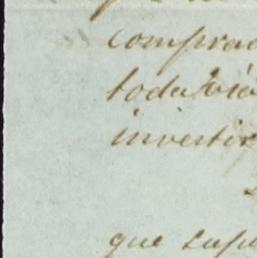 comprad
toda viá
investir
que supu